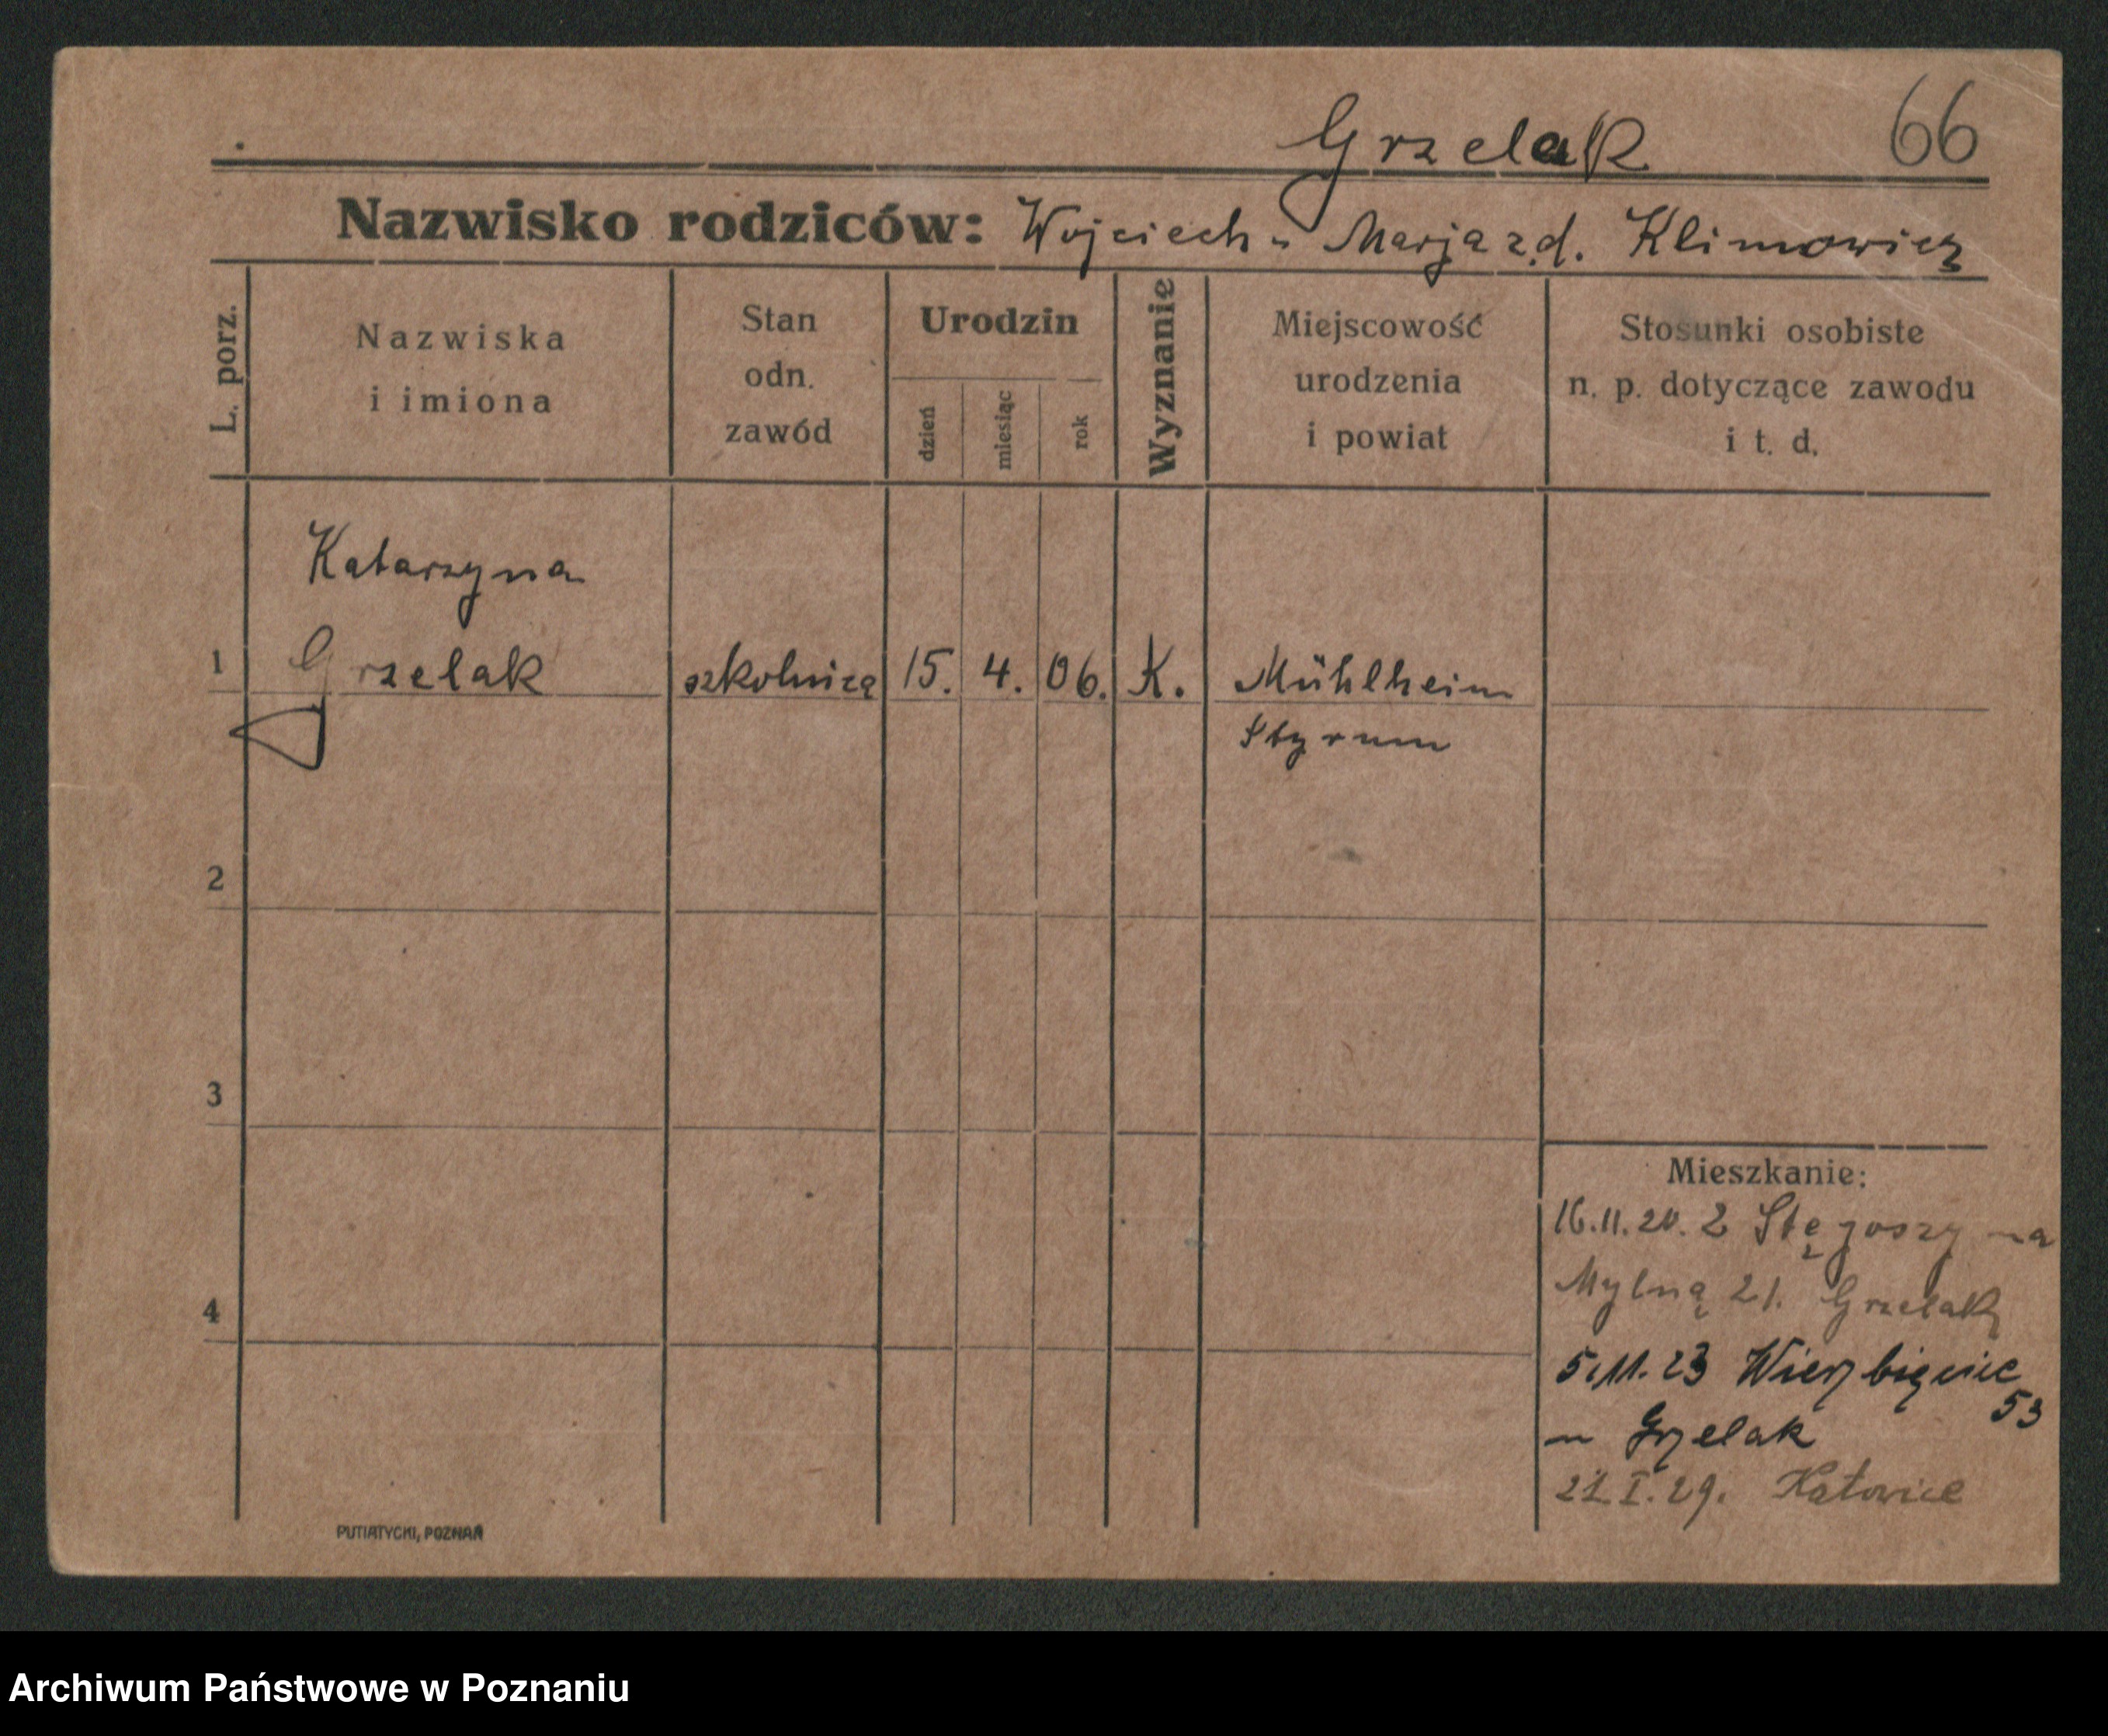 Grzelak 66
Nazwisko rodziców: Wojciech u Marja z.d. Klimowicz
L. porz.
Nazwiska
i imiona
Stan
odn.
zawód
Urodzin
dzień
miesiąc
rok
Wyznanie
Miejscowość
urodzenia
i powiat
Stosunki osobiste
n. p. dotyczące zawodu
i t. d.
Katarzyna
1 Grzelak szkolnicą 15. 4. 06. K. Mühlheim
Styrum
2
3
4
Mieszkanie:
16.11.20. Z na
Mylną 21. Grzelak
5.11.23 Wierzbięcice
53
Grzelak
21.I.29. Katowice
PUTIATYCKI, POZNAŃ
Archiwum Państwowe w Poznaniu